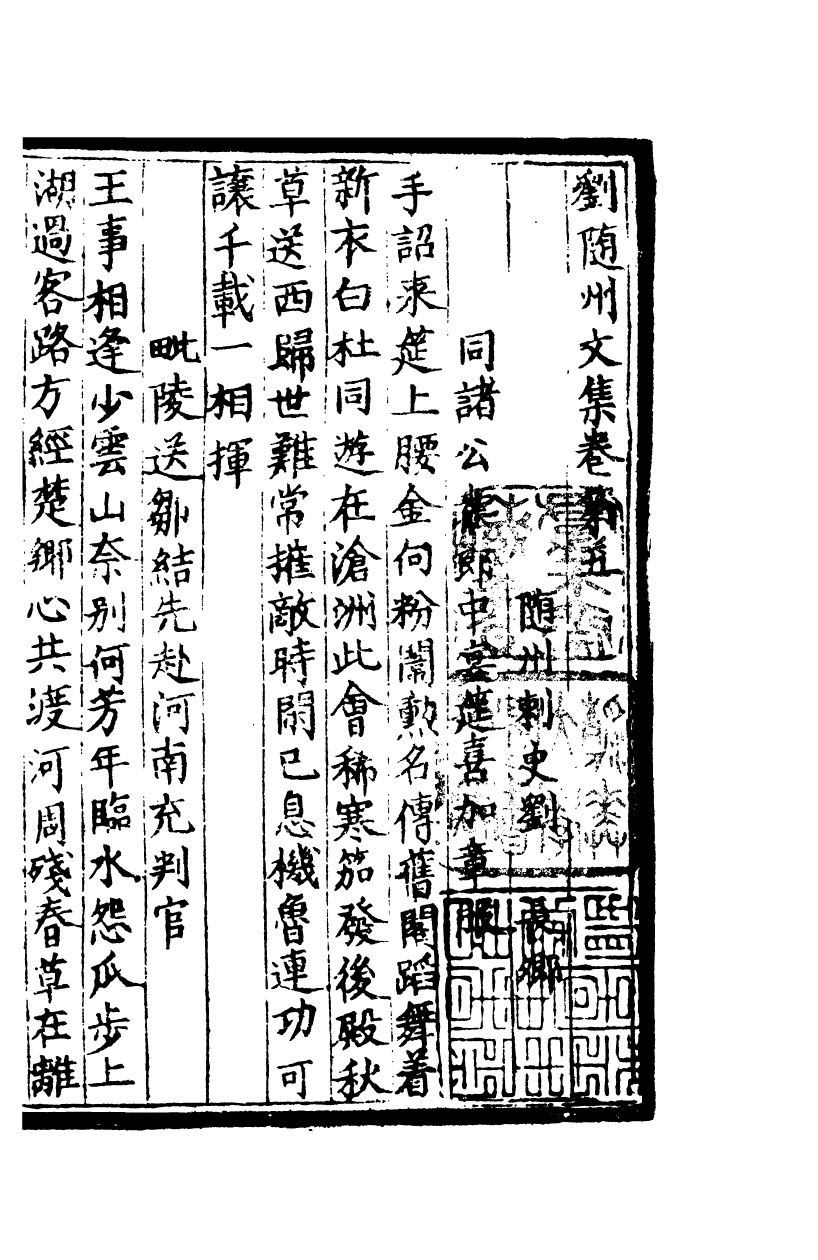 劉随州文集卷第五
随州刺史劉長卿
同諸公袁郎中宴筵喜加章服
手詔来筵上腰金向粉闈勲名傳舊閣蹈舞着
新衣白社同遊在滄洲此會稀寒笳發後殿秋
草送西歸世難常摧敵時閑已息機魯連功可
譲千載一相揮
毗陵送鄒結先赴河南充判官
王事相逢少雲山奈别何芳年臨水怨瓜步上
潮過客路方經楚郷心共渡河周殘春草在離